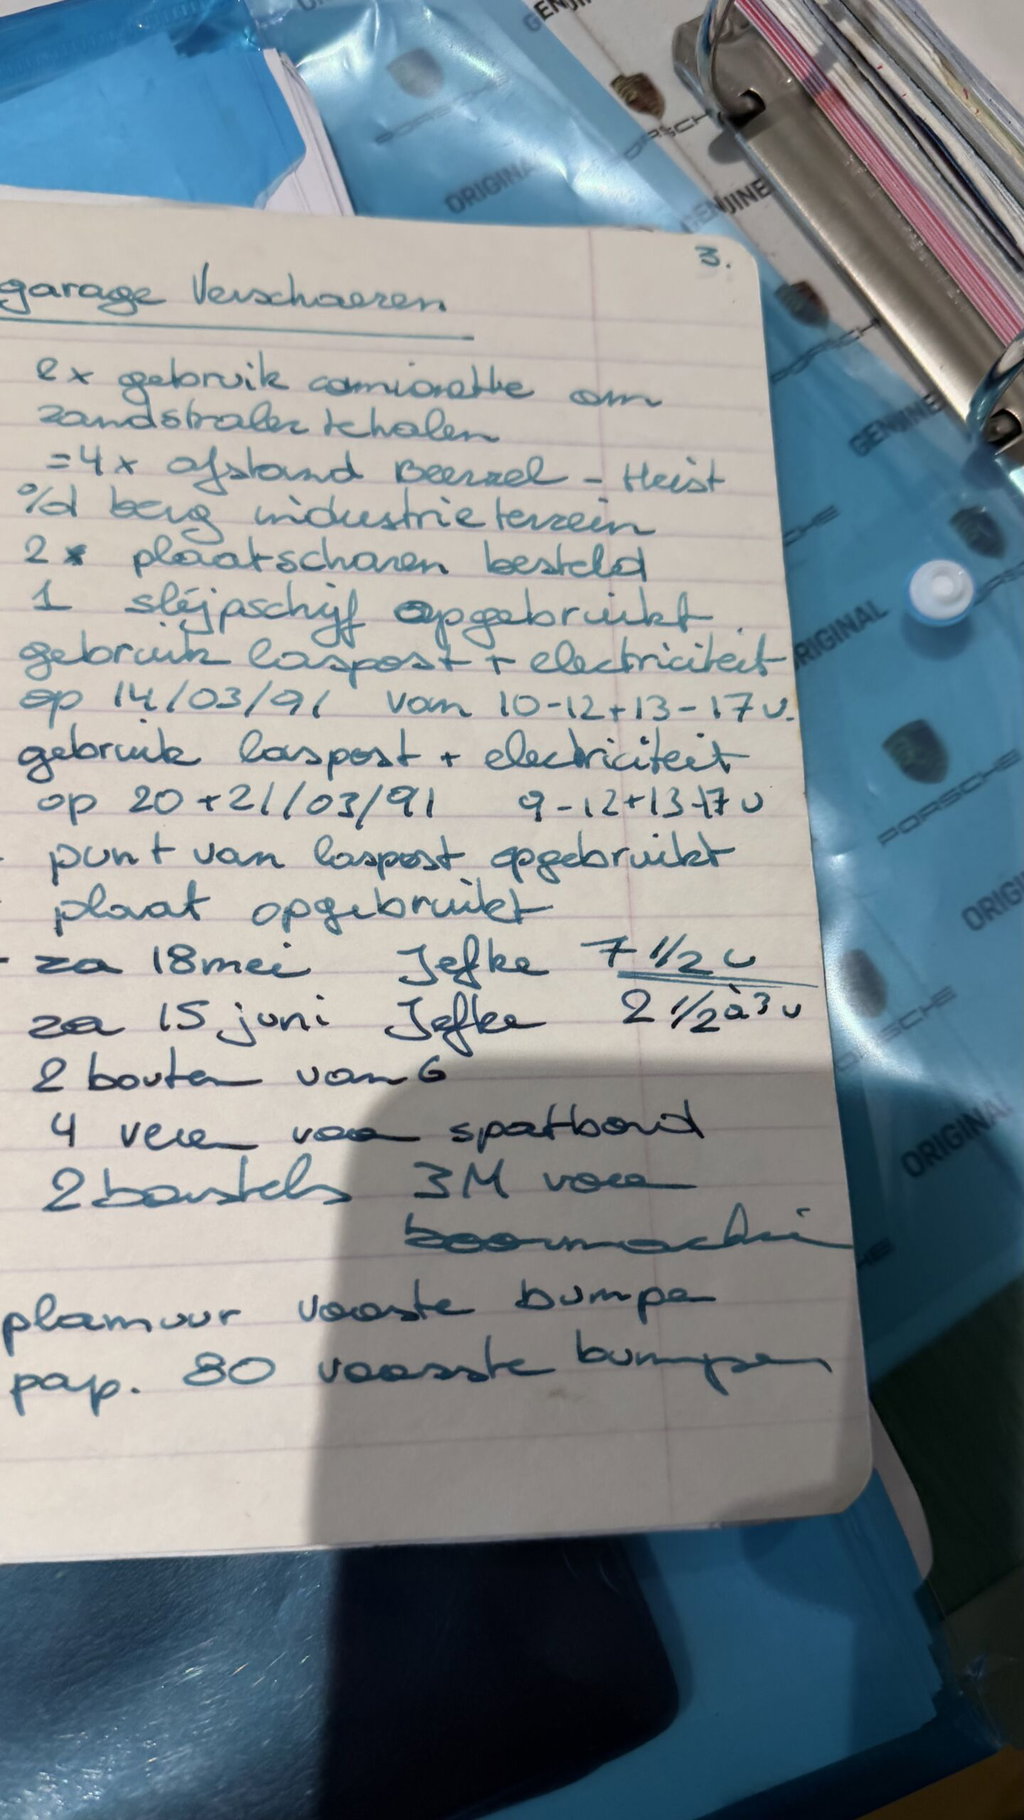 GENUINE
PORSCHE
PORSCHE
ORIGINAL
GENUINE
3.
garage Verschaeren
2x gebruik camionette om
zandstraler te halen
=4x afstand Beerzel - Heist
o/d berg industrieterrein
2x plaatscharen besteld
1 slijpschijf opgebruikt
gebruik laspost + electriciteit
op 14/03/91 van 10-12+13-17 u.
gebruik laspost + electriciteit
op 20+21/03/91 9-12+13-17 u
- punt van laspost opgebruikt
- plaat opgebruikt
- za 18 mei Jefke 7 1/2 u
za 15 juni Jefke 2 1/2 à 3 u
2 bouten van 6
4 veren voor spatbord
2 borstels 3M voor
boormachi
plamuur voorste bumper
pap. 80 voorste bumper
PORSCHE
GENUINE
ORIGINAL
PORSCHE
ORIGINAL